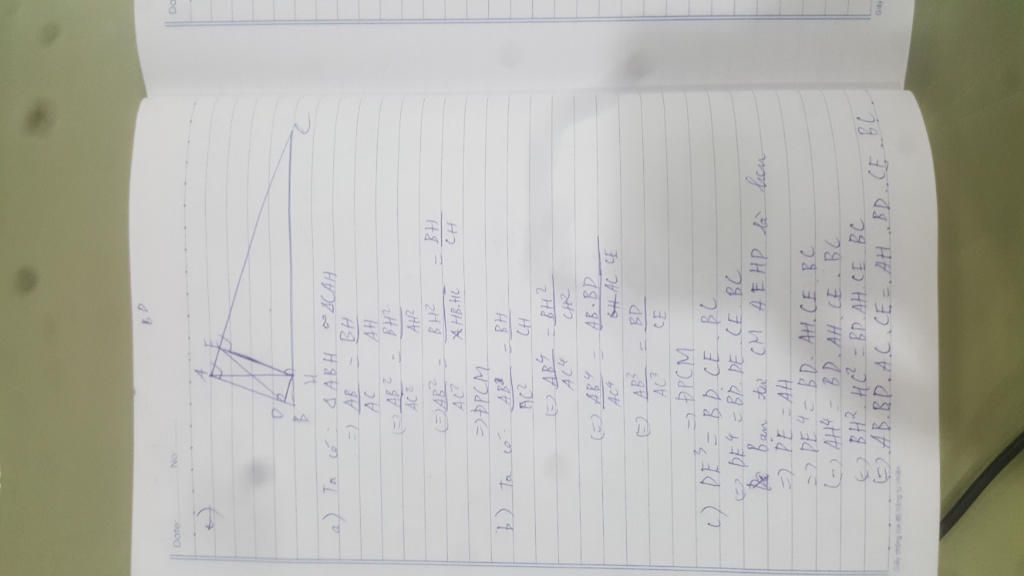 BD
Date: No:
c)
A
E
D
B
H
C
a) Ta có: Δ ABH ∽ ΔCAH
=) AB/AC = BH/AH
(=) AB²/AC² = BH²/AH²
(=) AB²/AC² = BH²/HB.HC = BH/CH
=) ĐPCM
b) Ta có: AB²/AC² = BH/CH
(=) AB⁴/AC⁴ = BH²/CH²
(=) AB⁴/AC⁴ = AB.BD/AC.CE
(=) AB³/AC³ = BD/CE
=) ĐPCM
c) DE³ = BD.CE.BC
(=) DE⁴ = BD.DE.CE.BC
Bạn tự CM AEHD là hcn
=) DE = AH
=) DE⁴ = BD.AH.CE.BC
(=) AH⁴ = BD.AH.CE.BC
(=) BH².HC² = BD.AH.CE.BC
(=) AB.BD.AC.CE = AH.BD.CE.BC